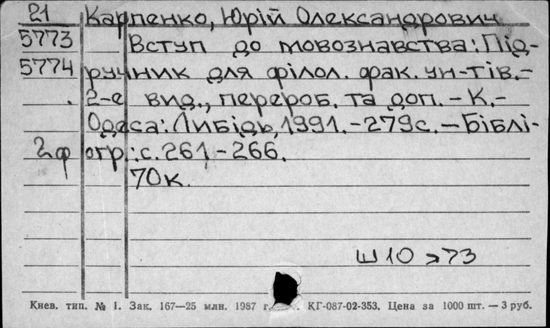 21 Карпенко, Юрій Олександрович
5773 Вступ до мовознавства: Під-
5774 ручник для філол. фак. ун-тів.-
2-е вид., перероб. та доп. - К.-
Одеса: Либідь, 1991. - 279с. - Біблі-
2ф огр.: с. 261, - 266.
70к.
Ш10 > 73
Киев. тип. № 1. Зак. 167—25 млн. 1987 г. КГ-087-02-353. Цена за 1000 шт. — 3 руб.